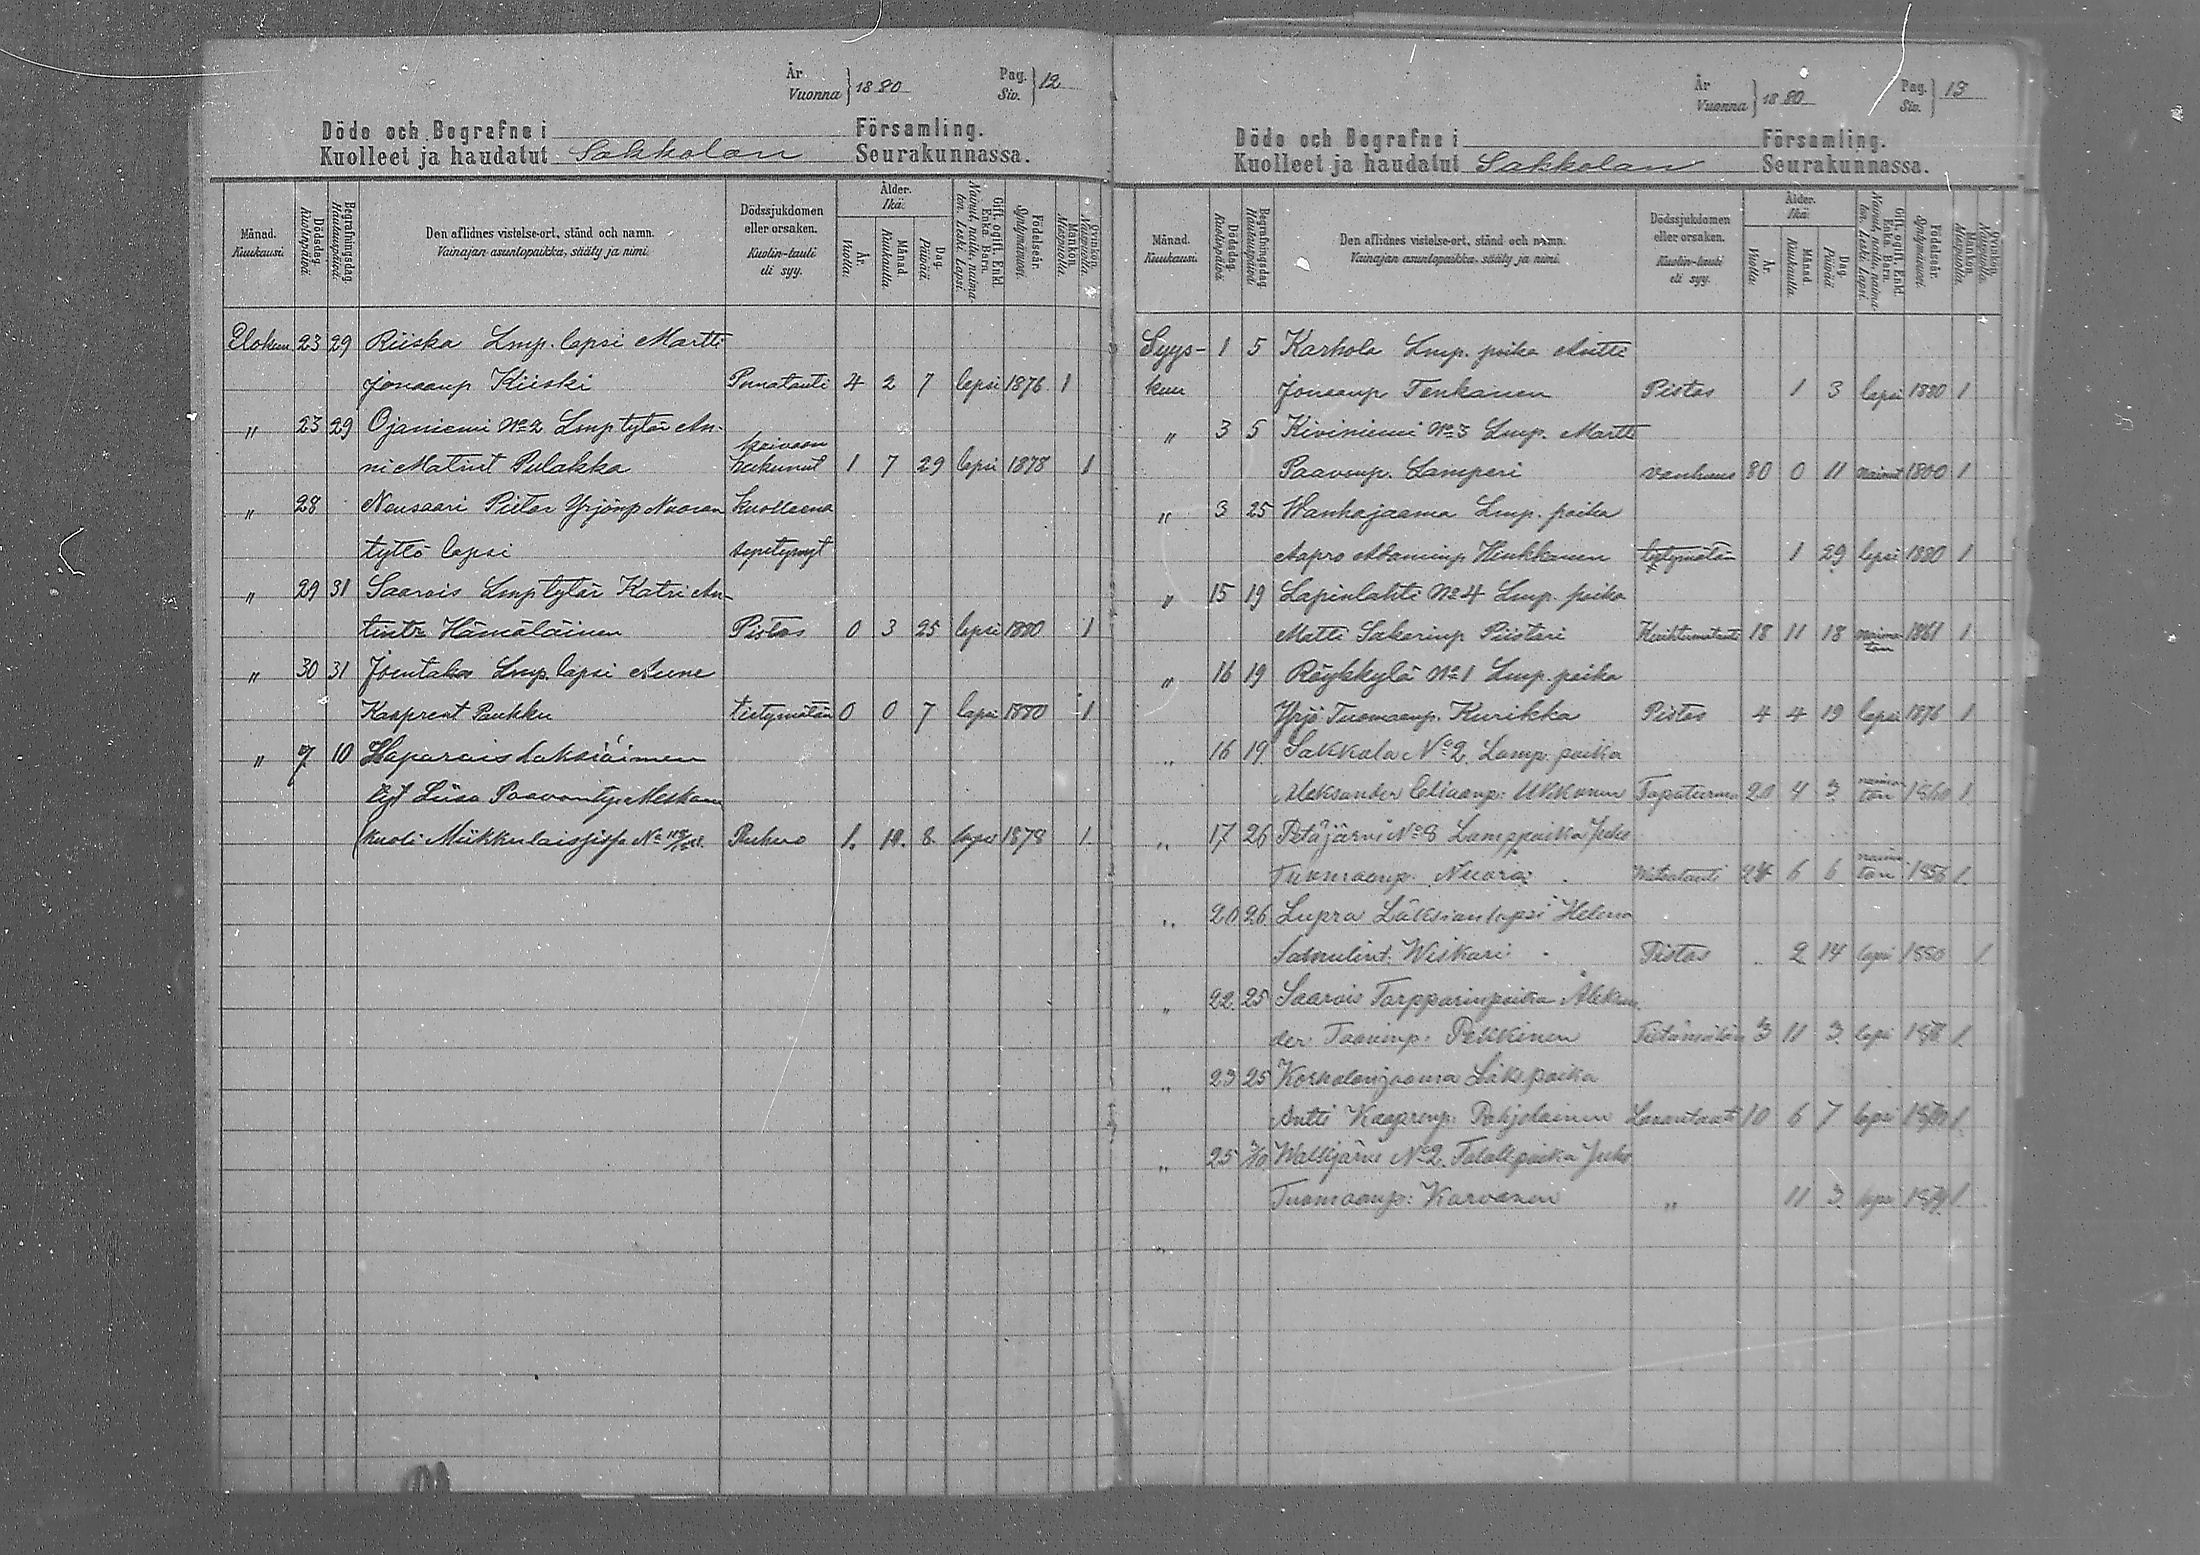 År
Vuonna } 1880 Pag. Siv. } 12
Döde och Begrafne i Församling.
Kuolleet ja haudatut Sakkolan Seurakunnassa.
Månad. Kuukausi.
Dödsdag. Kuolinpäivä.
Begrafningsdag. Hautauspäivä.
Den aflidnes vistelse-ort, stånd och namn.
Vainajan asuntopaikka, sääty ja nimi.
Dödssjukdomen eller orsaken.
Kuolin-tauti eli syy.
Ålder. Ikä.
År. Vuotta.
Månad. Kuukautta.
Dag. Päivää.
Gift, ogift, Enkl. Enka. Barn.
Nainut, naitu, naimaton. Leski. Lapsi.
Födelseår. Syntymävuosi.
Mankön. Miespuolia.
Qvinkön. Naispuolia.
Elokuu 23 29 Riiska Lmp. lapsi Martti
Joonaanp Kiiski 4 2 7 lapsi 1876 1
" 23 29 Ojaniemi No 2 Lmp tytär An-
ni Matint Pulakka kaivoon hukunut 1 7 29 lapsi 1878 1
" 28 Neusaari Pietar Yrjönp Nuoran kuolleena
tyttö lapsi syntynyt
" 29 31 Saarois Lmp tytär Katri An-
tintr Hämäläinen Pistos 0 3 25 lapsi 1880 1
" 30 31 Joentaka Lmp. lapsi Aune
Kasprent Paukku tietymätön 0 0 7 lapsi 1880 1
" 7 10 Haparais
tyt Liisa
kuoli Mükkulais 1. 10. 8. lapsi 1878 1.
År
Vuonna } 1880 Pag. Siv. } 13
Döde och Begrafne i Församling.
Kuolleet ja haudatut Sakkolan Seurakunnassa.
Månad. Kuukausi.
Dödsdag. Kuolinpäivä.
Begrafningsdag. Hautauspäivä.
Den aflidnes vistelse-ort, stånd och namn.
Vainajan asuntopaikka, sääty ja nimi.
Dödssjukdomen eller orsaken.
Kuolin-tauti eli syy.
Ålder. Ikä.
År. Vuotta.
Månad. Kuukautta.
Dag. Päivää.
Gift, ogift, Enkl. Enka. Barn.
Nainut, naitu, naimaton. Leski. Lapsi.
Födelseår. Syntymävuosi.
Mankön. Miespuolia.
Qvinkön. Naispuolia.
Syys- 1 5 Karhola Lmp. poika Antti
kuu Joonaanp Tenkanen Pistos 1 3 lapsi 1880 1
" 3 5 Kiviniemi No 3 Lmp. Martti
Paavonp. Lamperi vanhuus 80 0 11 nainut 1800 1
" 3 25 Wanhajaama Lmp. poika
Aapro Adaminp Heukkanen 1 29 lapsi 1880 1
" 15 19 Lapinlahti No 4 Lmp. poika
Matti Sakarinp Piistari 18 11 18 naimaton 1861 1
" 16 19 Röykkylä No 1 Lmp. poika
Yrjö Tuomaanp. Kurikka Pistos 4 4 19 lapsi 1876 1
" 16 19 Sakkola No 2. Lamp. poika
Aleksander Eliaanp: Ukkonen Tapaturma 20 4 3 naimaton 1860 1.
" 17 26 Petäjärvi No 8 Lamp poika Juho
Tuomaanp. Nuora 6 6 naimaton 1856 1.
" 20 26 Lapsi Helena
Wiskari Pistos 2 14 lapsi 1880 1.
" 22. 25 Saarois Torpparinpoika Aleksan
der Taavinp: Pekkinen Tietämätön 3 11 3. lapsi 1.
" 23 25 Korholanjaama Läks. poika
Antti Kasprenp. Pohjolainen 10 6 7 lapsi 1.
" 25 Walkjärvi No 2. poika Juho
Tuomaanp: Karvonen " 11 3. lapsi 1879 1.
"